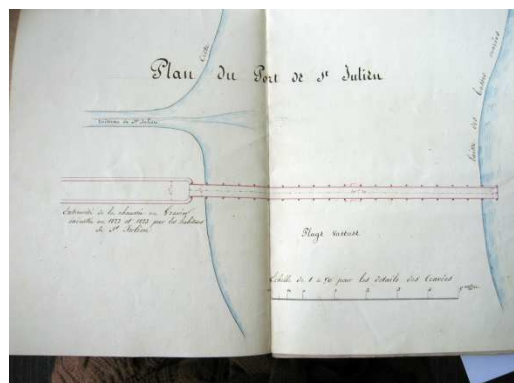 Plan du Port de St Julien
Côte
Ruisseau de St Julien
limite des basses marées
Extrémité de la chaussée en Gravier
en 1822 et 1823 par les habitans
de St Julien
Plage vaseuse
Échelle de 1 à pour les détails des travées